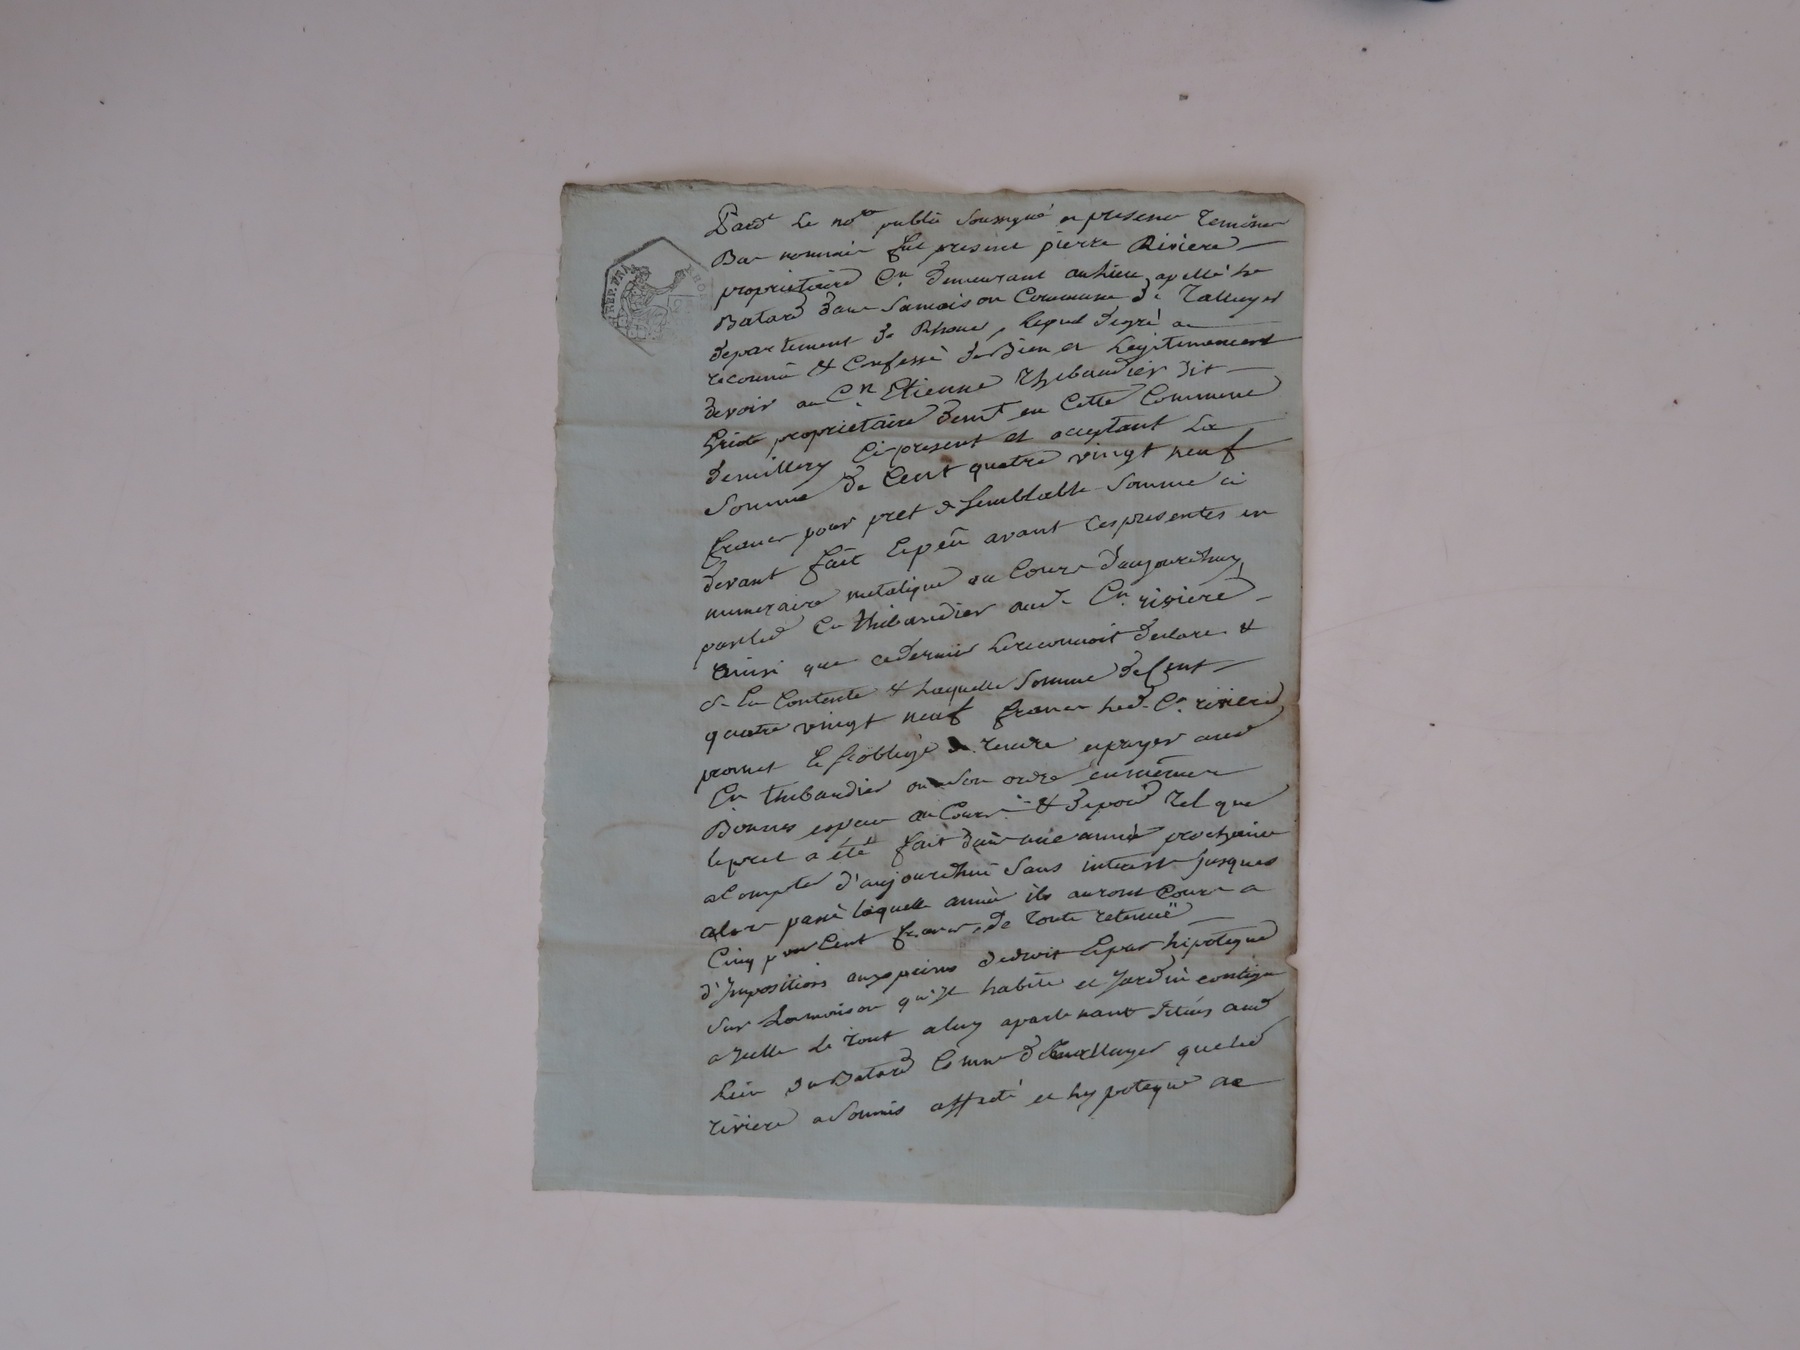 REP. FRA
Pard.t le no.re public soussigné en presence temoins
Bas nommés fut present pierre Riviere
proprietaire C.n demeurant au Lieu apellé le
Batard dans Samaison Commune de Talluyer
departement du Rhone, lequel degré a
reconnu & Confessé de Bien et Legitimement
devoir au C.n Etienne Thibaudier dit
proprietaire dem.t en Cette Commune
demillery ci present et acceptant La
Somme de Cent quatre vingt neuf
francs pour pret de Semblable Somme ci
devant fait avant ces presentes en
numeraire metalique au Cours d'aujourd'huy
par led C.n Thibaudier aud. C.n riviere
Ainsi que cedernier Lereconnoit declare &
S'en Contente & Laquelle Somme deCent
quatre vingt neuf francs led. C.n riviere
promet & S'oblige de rendre et payer aud
C.n Thibaudier ou a Son ordre en mêmes
Bonnes especes au Cours & depoid tel que
lepret a été fait dans une année prochaine
aCompter d'aujourdhui Sans interest Jusques
alors passé laquelle année ils auront Cours a
Cinq pour Cent francs de toute retenuë
d'Impositions aux peines dedroit & par hipoteque
Sur Lamaison qu'il habite et Jardin contigu
a Icelle Le tout a luy apartenant Situés aud
Lieu du Batard Com.ne de Talluyer queled
riviere aSoumis affecté et hypoteque au